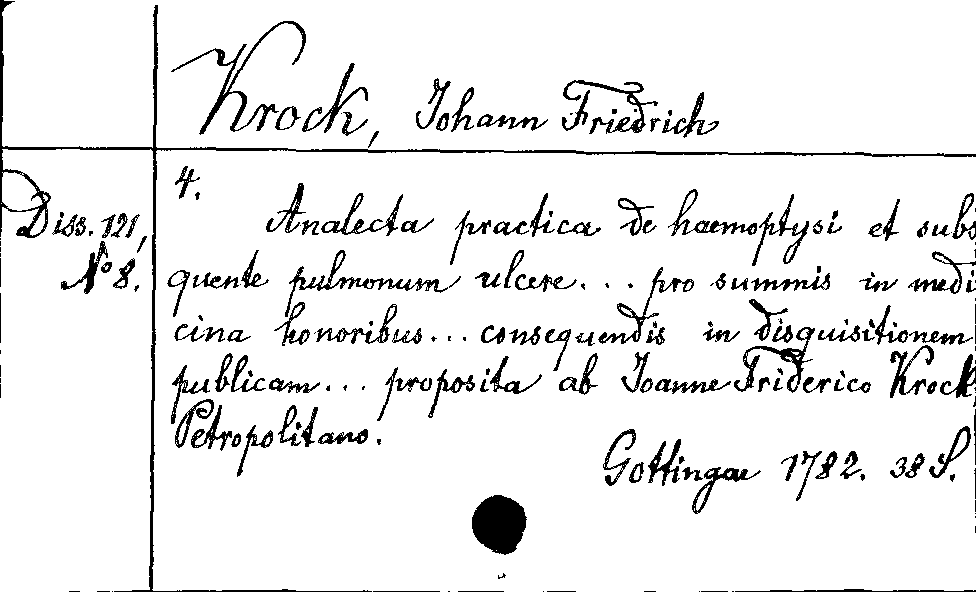 Krock, Johann Friedrich
4.
Diss. 121,
No 8.
Analecta practica de haemoptysi et subs
quente pulmonum ulcere... pro summis in medi
cina honoribus... consequendis in disquisitionem
publicam... proposita ab Joanne Friderico Krock
Petropolitano.
Gottingae 1782. 38 S.